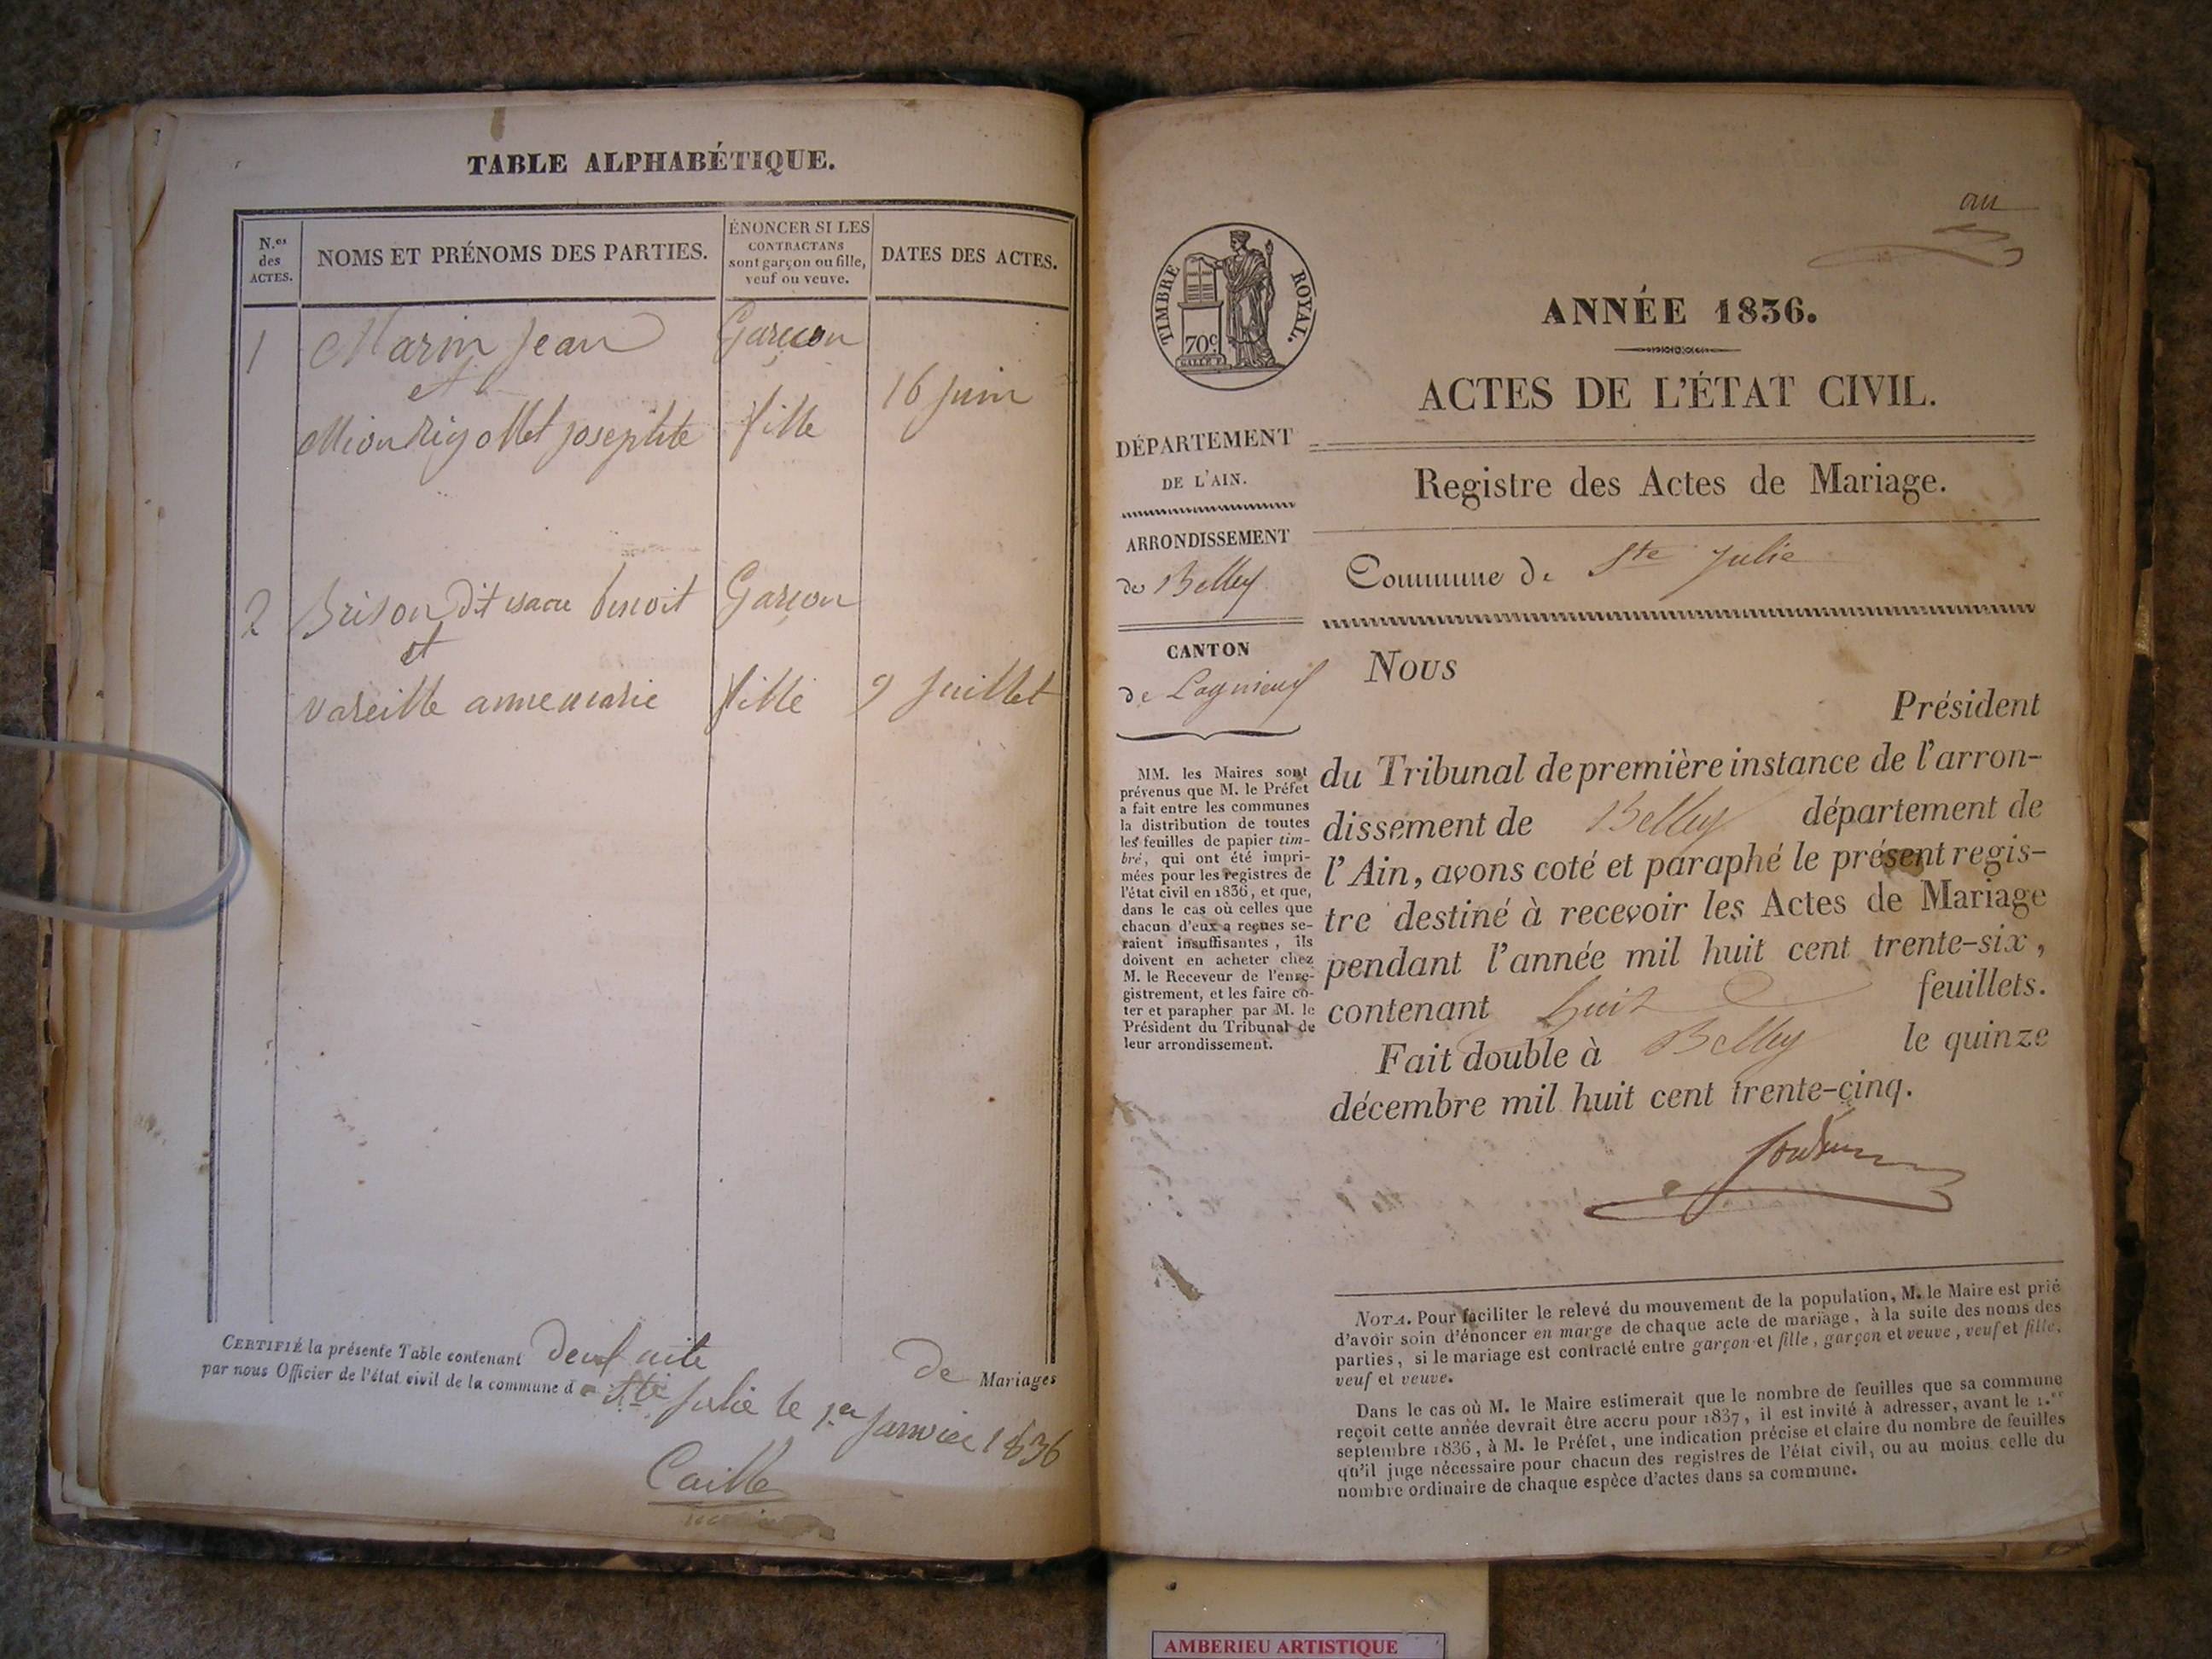 TABLE ALPHABÉTIQUE.
N.os des ACTES.
NOMS ET PRÉNOMS DES PARTIES.
ÉNONCER SI LES
CONTRACTANS
sont garçon ou fille,
veuf ou veuve.
DATES DES ACTES.
1 Marin Jean Garçon
et
Mion Rigollet josephte fille 16 juin
2 Brison dit benoit Garçon
et
vareille anne marie fille 9 juillet
CERTIFIÉ la présente Table contenant deux de Mariages
par nous Officier de l'état civil de la commune d e Ste Julie le 1er Janvier 1836
Caille
TIMBRE ROYAL.
70c
ANNÉE 1836.
ACTES DE L'ÉTAT CIVIL.
DÉPARTEMENT
DE L'AIN.
Registre des Actes de Mariage.
ARRONDISSEMENT
de Belley
Commune de Ste Julie
CANTON
de Lagnieux
MM. les Maires sont
prévenus que M. le Préfet
a fait entre les communes
la distribution de toutes
les feuilles de papier tim-
bré, qui ont été impri-
mées pour les registres de
l'état civil en 1836, et que,
dans le cas où celles que
chacun d'eux a reçues se-
raient insuffisantes, ils
doivent en acheter chez
M. le Receveur de l'enre-
gistrement, et les faire co-
ter et parapher par M. le
Président du Tribunal de
leur arrondissement.
Nous
Président
du Tribunal de première instance de l'arron-
dissement de Belley département de
l'Ain, avons coté et paraphé le présent regis-
tre destiné à recevoir les Actes de Mariage
pendant l'année mil huit cent trente-six,
contenant huit feuillets.
Fait double à Belley le quinze
décembre mil huit cent trente-cinq.
NOTA. Pour faciliter le relevé du mouvement de la population, M. le Maire est prié
d'avoir soin d'énoncer en marge de chaque acte de mariage, à la suite des noms des
parties, si le mariage est contracté entre garçon et fille, garçon et veuve, veuf et fille,
veuf et veuve.
Dans le cas où M. le Maire estimerait que le nombre de feuilles que sa commune
reçoit cette année devrait être accru pour 1837, il est invité à adresser, avant le 1.er
septembre 1836, à M. le Préfet, une indication précise et claire du nombre de feuilles
qu'il juge nécessaire pour chacun des registres de l'état civil, ou au moins celle du
nombre ordinaire de chaque espèce d'actes dans sa commune.
AMBERIEU ARTISTIQUE